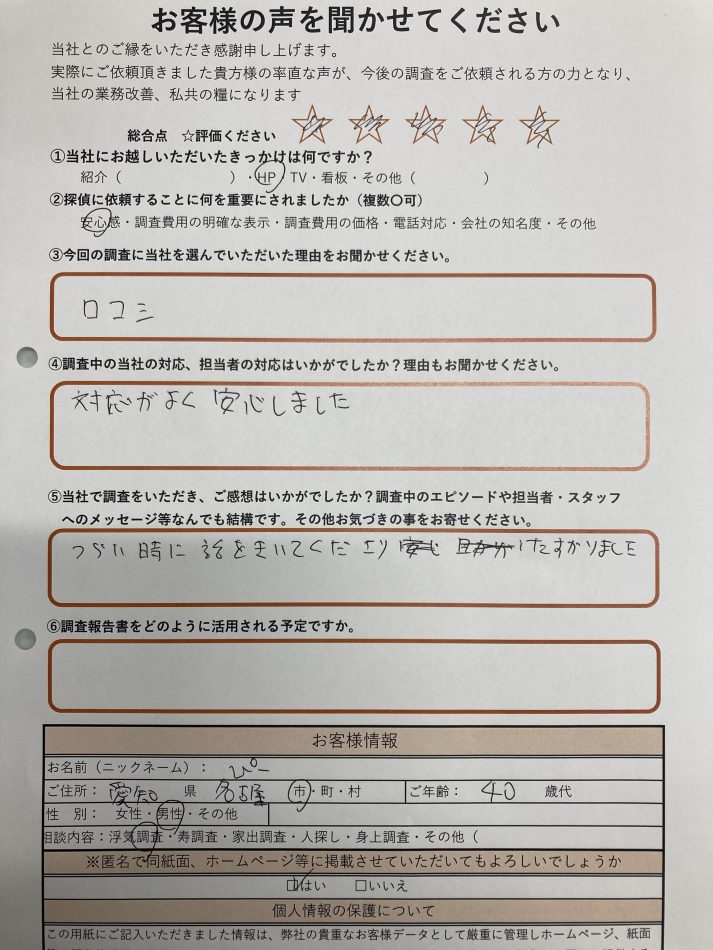 お客様の声を聞かせてください
当社とのご縁をいただき感謝申し上げます。
実際にご依頼頂きました貴方様の率直な声が、今後の調査をご依頼される方の力となり、
当社の業務改善、私共の糧になります
総合点 ☆評価ください
①当社にお越しいただいたきっかけは何ですか?
紹介( )・HP・TV・看板・その他( )
②探偵に依頼することに何を重要にされましたか(複数〇可)
安心感・調査費用の明確な表示・調査費用の価格・電話対応・会社の知名度・その他
③今回の調査に当社を選んでいただいた理由をお聞かせください。
口コミ
④調査中の当社の対応、担当者の対応はいかがでしたか?理由もお聞かせください。
対応がよく 安心しました
⑤当社で調査をいただき、ご感想はいかがでしたか?調査中のエピソードや担当者・スタッフ
へのメッセージ等なんでも結構です。その他お気づきの事をお寄せください。
つらい時に 話をきいてくださり たすかりました
⑥調査報告書をどのように活用される予定ですか。
お客様情報
お名前(ニックネーム): ぴー
ご住所: 愛知 県 名古屋 市・町・村 ご年齢: 40 歳代
性 別: 女性・男性・その他
相談内容:浮気調査・寿調査・家出調査・人探し・身上調査・その他(
※匿名で同紙面、ホームページ等に掲載させていただいてもよろしいでしょうか
☑はい □いいえ
個人情報の保護について
この用紙にご記入いただきました情報は、弊社の貴重なお客様データとして厳重に管理しホームページ、紙面